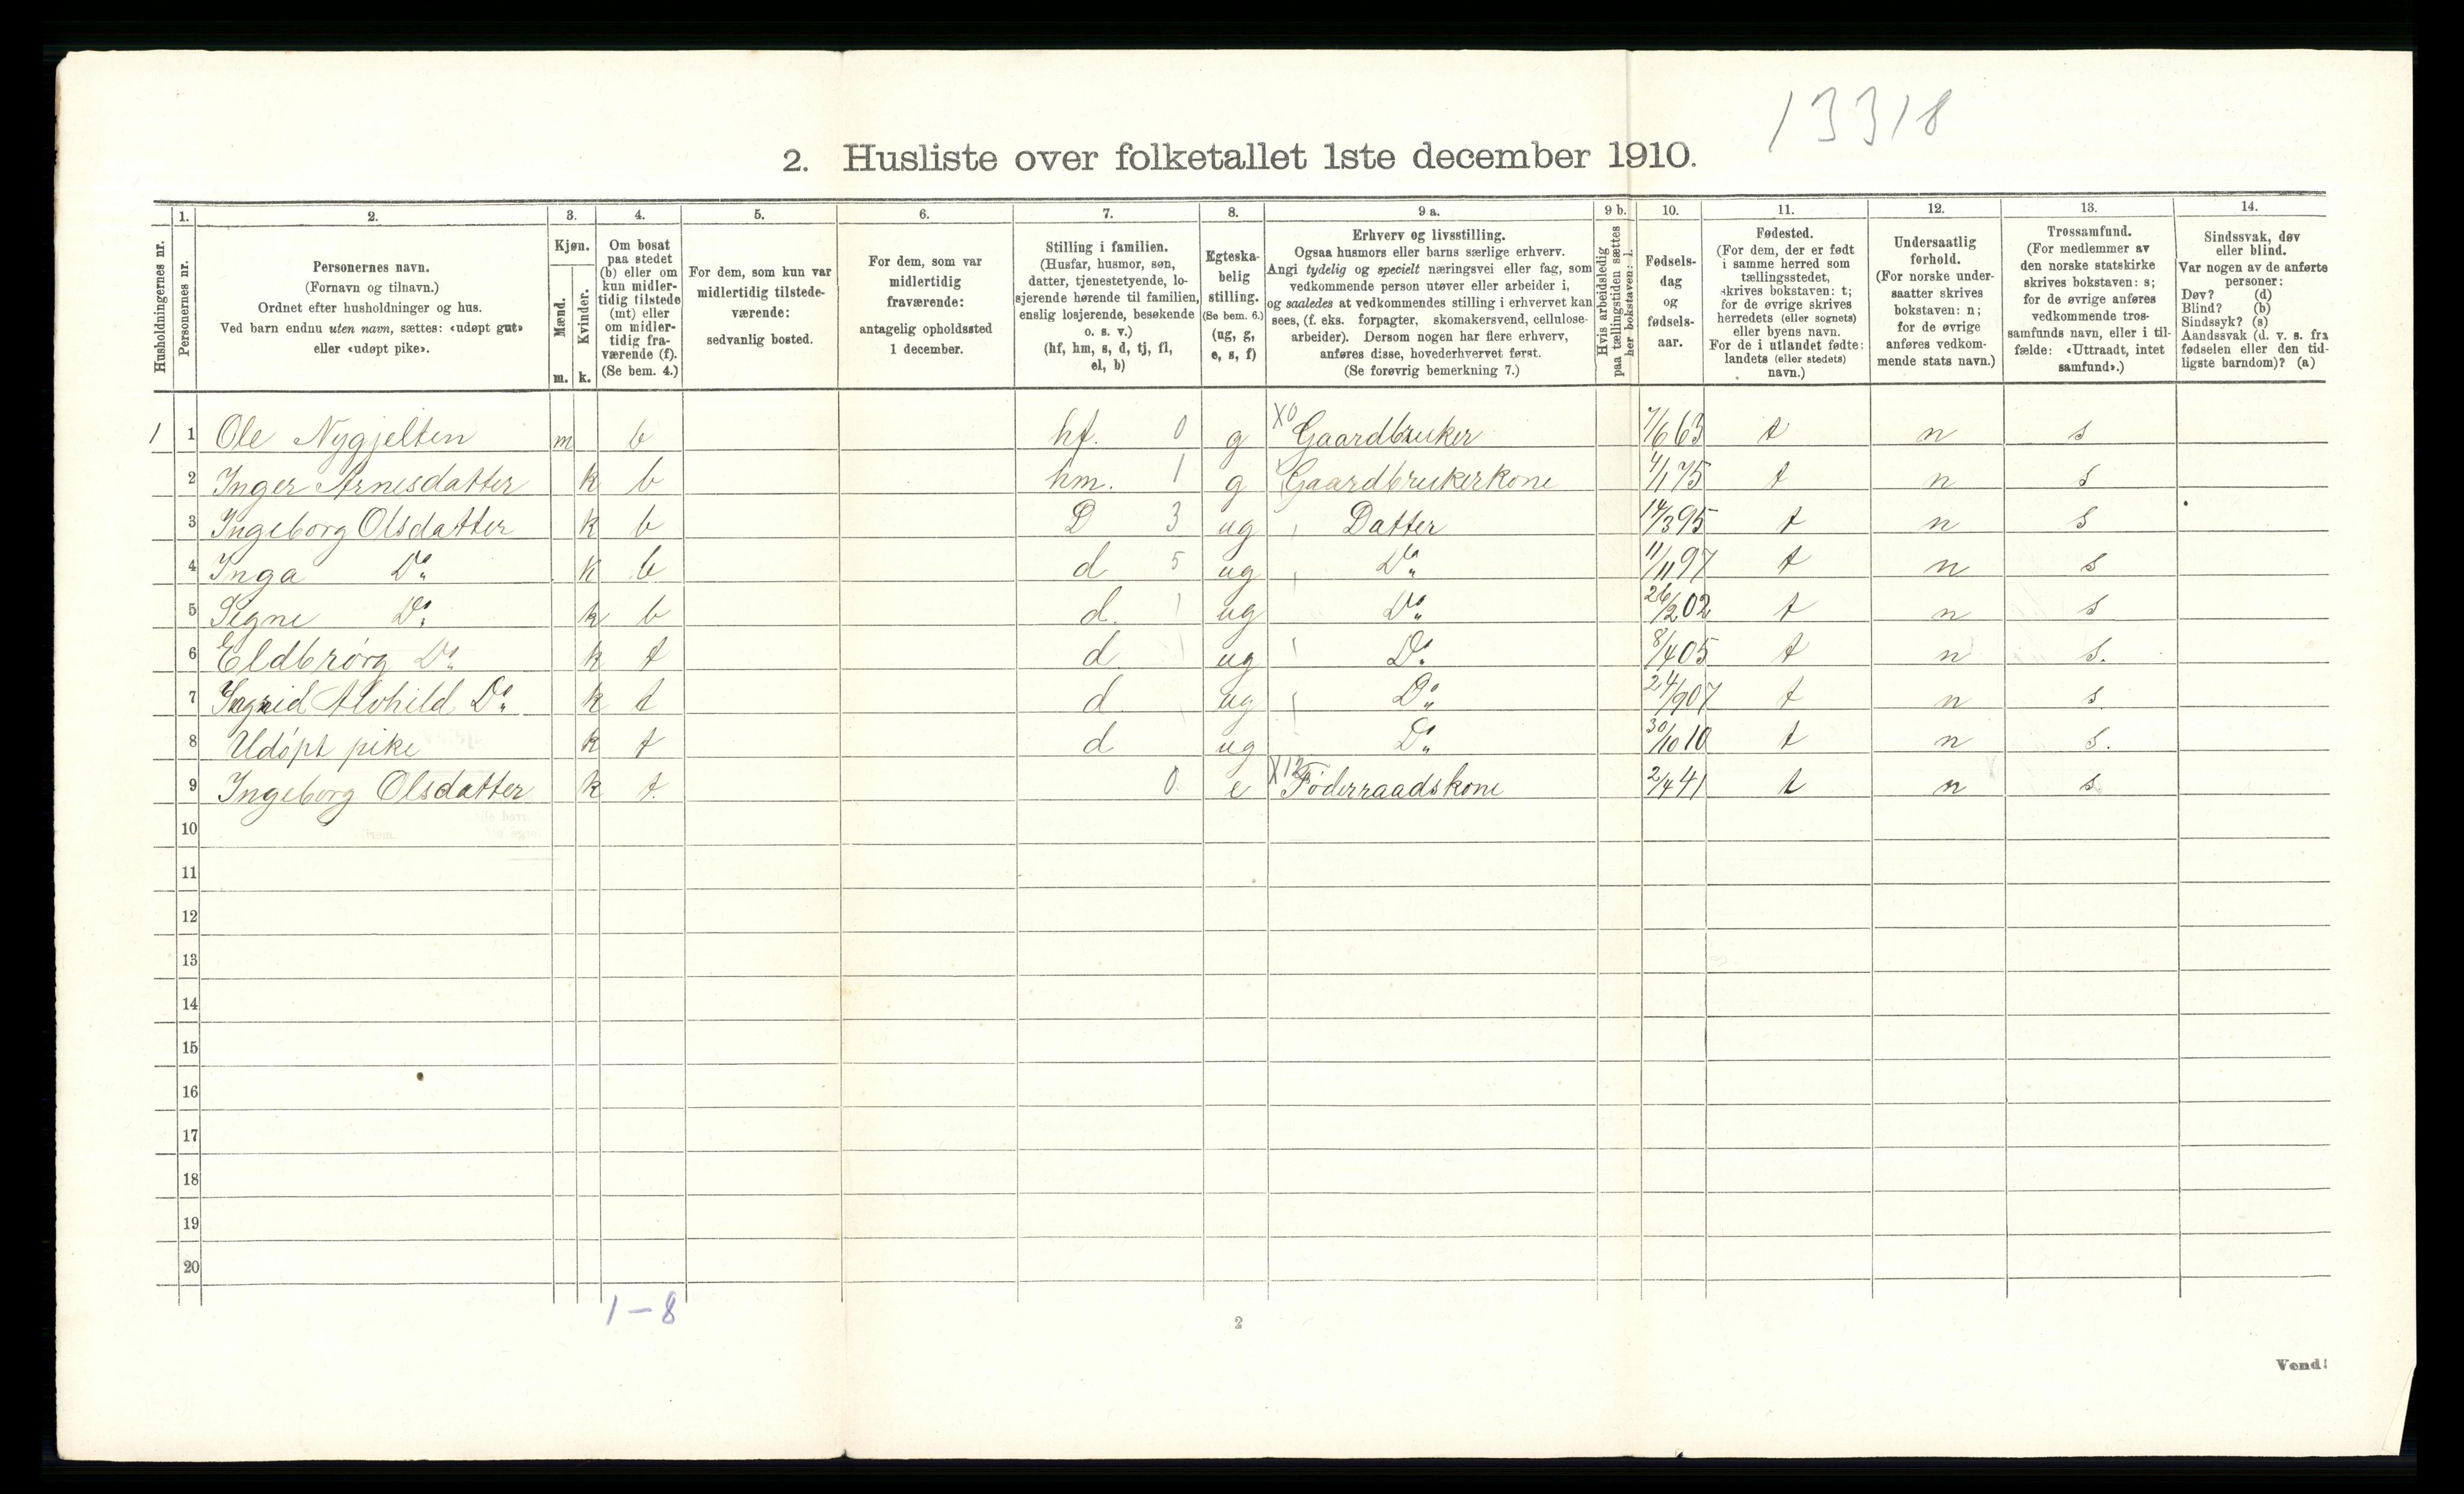 13318
2. Husliste over folketallet 1ste december 1910.
Husholdningernes nr.
1.
Personernes nr.
2.
Personernes navn.
(Fornavn og tilnavn.)
Ordnet efter husholdninger og hus.
Ved barn endnu uten navn, sættes: «udøpt gut»
eller «udøpt pike».
3.
Kjøn.
Mænd.
Kvinder.
m. k.
4.
Om bosat
paa stedet
(b) eller om
kun midler-
tidig tilstede
(mt) eller
om midler-
tidig fra-
værende (f).
(Se bem. 4.)
5.
For dem, som kun var
midlertidig tilstede-
værende:
sedvanlig bosted.
6.
For dem, som var
midlertidig
fraværende:
antagelig opholdssted
1 december.
7.
Stilling i familien.
(Husfar, husmor, søn,
datter, tjenestetyende, lo-
sjerende hørende til familien,
enslig losjerende, besøkende
o. s. v.)
(hf, hm, s, d, tj, fl,
el, b)
8.
Egteska-
belig
stilling.
(Se bem. 6.)
(ug, g,
e, s, f)
9 a.
Erhverv og livsstilling.
Ogsaa husmors eller barns særlige erhverv.
Angi tydelig og specielt næringsvei eller fag, som
vedkommende person utøver eller arbeider i,
og saaledes at vedkommendes stilling i erhvervet kan
sees, (f. eks. forpagter, skomakersvend, cellulose-
arbeider). Dersom nogen har flere erhverv,
anføres disse, hovederhvervet først.
(Se forøvrig bemerkning 7.)
9 b.
Hvis arbeidsledig
paa tællingstiden sættes
her bokstaven: l.
10.
Fødsels-
dag
og
fødsels-
aar.
11.
Fødested.
(For dem, der er født
i samme herred som
tællingsstedet,
skrives bokstaven: t;
for de øvrige skrives
herredets (eller sognets)
eller byens navn.
For de i utlandet fødte:
landets (eller stedets)
navn.)
12.
Undersaatlig
forhold.
(For norske under-
saatter skrives
bokstaven: n;
for de øvrige
anføres vedkom-
mende stats navn.)
13.
Trossamfund.
(For medlemmer av
den norske statskirke
skrives bokstaven: s;
for de øvrige anføres
vedkommende tros-
samfunds navn, eller i til-
fælde: «Uttraadt, intet
samfund».)
14.
Sindssvak, døv
eller blind.
Var nogen av de anførte
personer:
Døv? (d)
Blind? (b)
Sindssyk? (s)
Aandssvak (d. v. s. fra
fødselen eller den tid-
ligste barndom)? (a)
1 1 Ole Nygjelten m b hf. 0 g X0 Gaardbruker 7/6 63 t n s
2 Inger Arnesdatter k b hm. 1 g Gaardbrukerkone 4/1 75 t n s
3 Ingeborg Olsdatter k b D 3 ug Datter 14/3 95 t n s
4 Inga Do k b d 5 ug Do 11/11 97 t n s
5 Signe Do k b d. 1 ug Do 26/2 02 t n s
6 Eldbrørg Do k t d ug Do 8/4 05 t n s.
7 Ingrid Alvhild Do k t d ug Do 24/9 07 t n s.
8 Udøpt pike k t d ug Do 30/10 10 t n s.
9 Ingeborg Olsdatter k t. 0 e Føderraadskone 2/4 41 t n s
10
11
12
13
14
15
16
17
18
19
20
1-8
2
Vend!